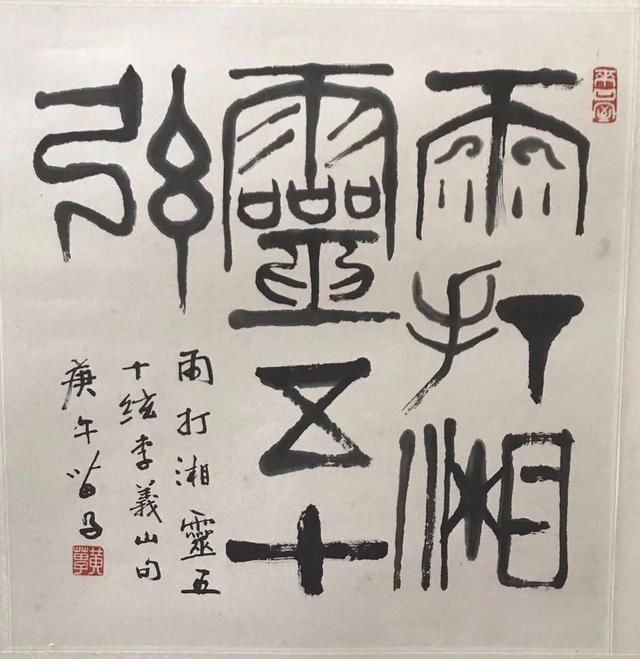 雨打湘
靈五十
弦
雨打湘靈五
十絃李義山句
庚午苗子